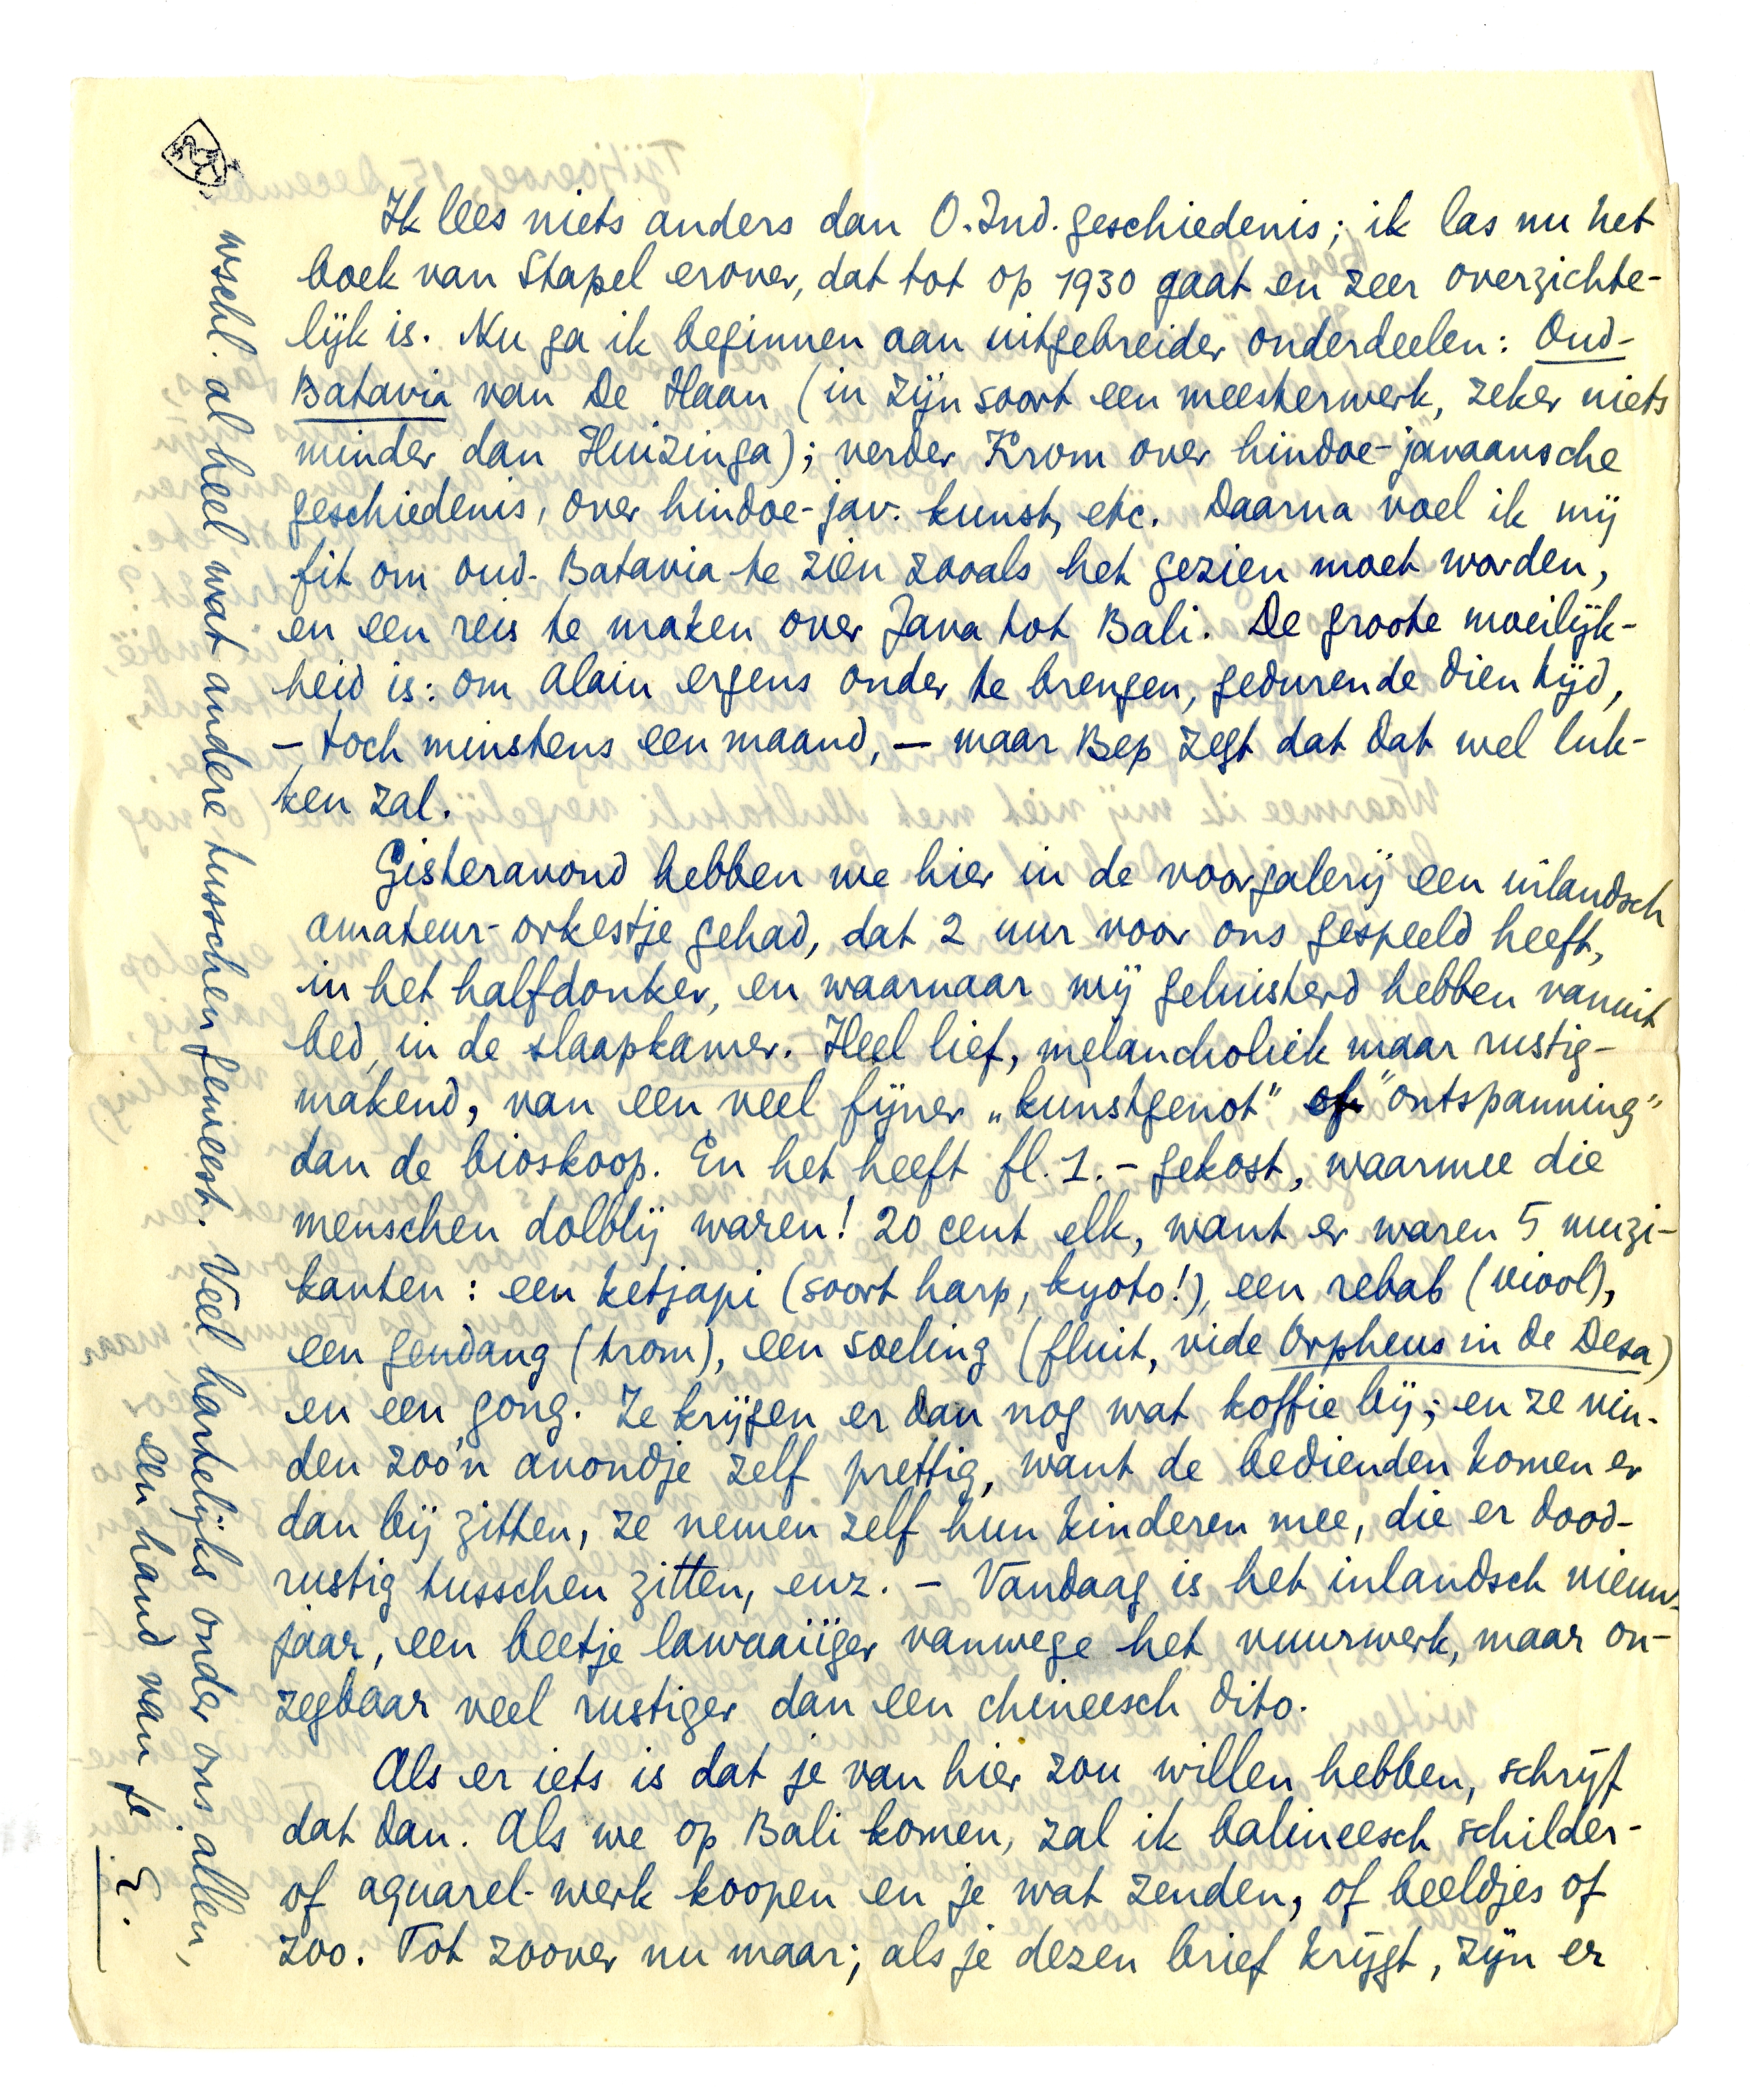 Ik lees niets anders dan O.Ind. geschiedenis; ik las nu het
boek van Stapel erover, dat tot op 1930 gaat en zeer overzichte-
lijk is. Nu ga ik beginnen aan uitgebreider onderdeelen: Oud-
Batavia van De Haan (in zijn soort een meesterwerk, zeker niets
minder dan Huizinga); verder Krom over hindoe-javaansche
geschiedenis, over hindoe-jav. kunst, etc. Daarna voel ik mij
fit om oud-Batavia te zien zooals het gezien moet worden,
en een reis te maken over Java tot Bali. De groote moeilijk-
heid is: om Alain ergens onder te brengen, gedurende dien tijd,
– toch minstens een maand, – maar Bep zegt dat dat wel luk-
ken zal.
Gisteravond hebben we hier in de voorgalerij een inlandsch
amateur-orkestje gehad, dat 2 uur voor ons gespeeld heeft,
in het halfdonker, en waarnaar wij geluisterd hebben vanuit
bed, in de slaapkamer. Heel lief, melancholiek maar rustig-
makend, van een veel fijner „kunstgenot" of "ontspanning"
dan de bioskoop. En het heeft fl. 1.– gekost, waarmee die
menschen dolblij waren! 20 cent elk, want er waren 5 muzi-
kanten: een ketjapi (soort harp, kyoto!), een rebab (viool),
een gendang (trom), een soeling (fluit, vide Orpheus in de Desa)
en een gong. Ze krijgen er dan nog wat koffie bij; en ze vin-
den zoo'n avondje zelf prettig, want de bedienden komen er
dan bij zitten, ze nemen zelf hun kinderen mee, die er dood-
rustig tusschen zitten, enz. – Vandaag is het inlandsch nieuw-
jaar, een beetje lawaaiïger vanwege het vuurwerk, maar on-
zegbaar veel rustiger dan een chineesch dito.
Als er iets is dat je van hier zou willen hebben, schrijf
dat dan. Als we op Bali komen, zal ik balineesch schilder-
of aquarel-werk koopen en je wat zenden, of beeldjes of
zoo. Tot zoover nu maar; als je dezen brief krijgt, zijn er
wschl. al heel wat andere tusschen geweest. Veel hartelijks onder ons allen,
een hand van je E.